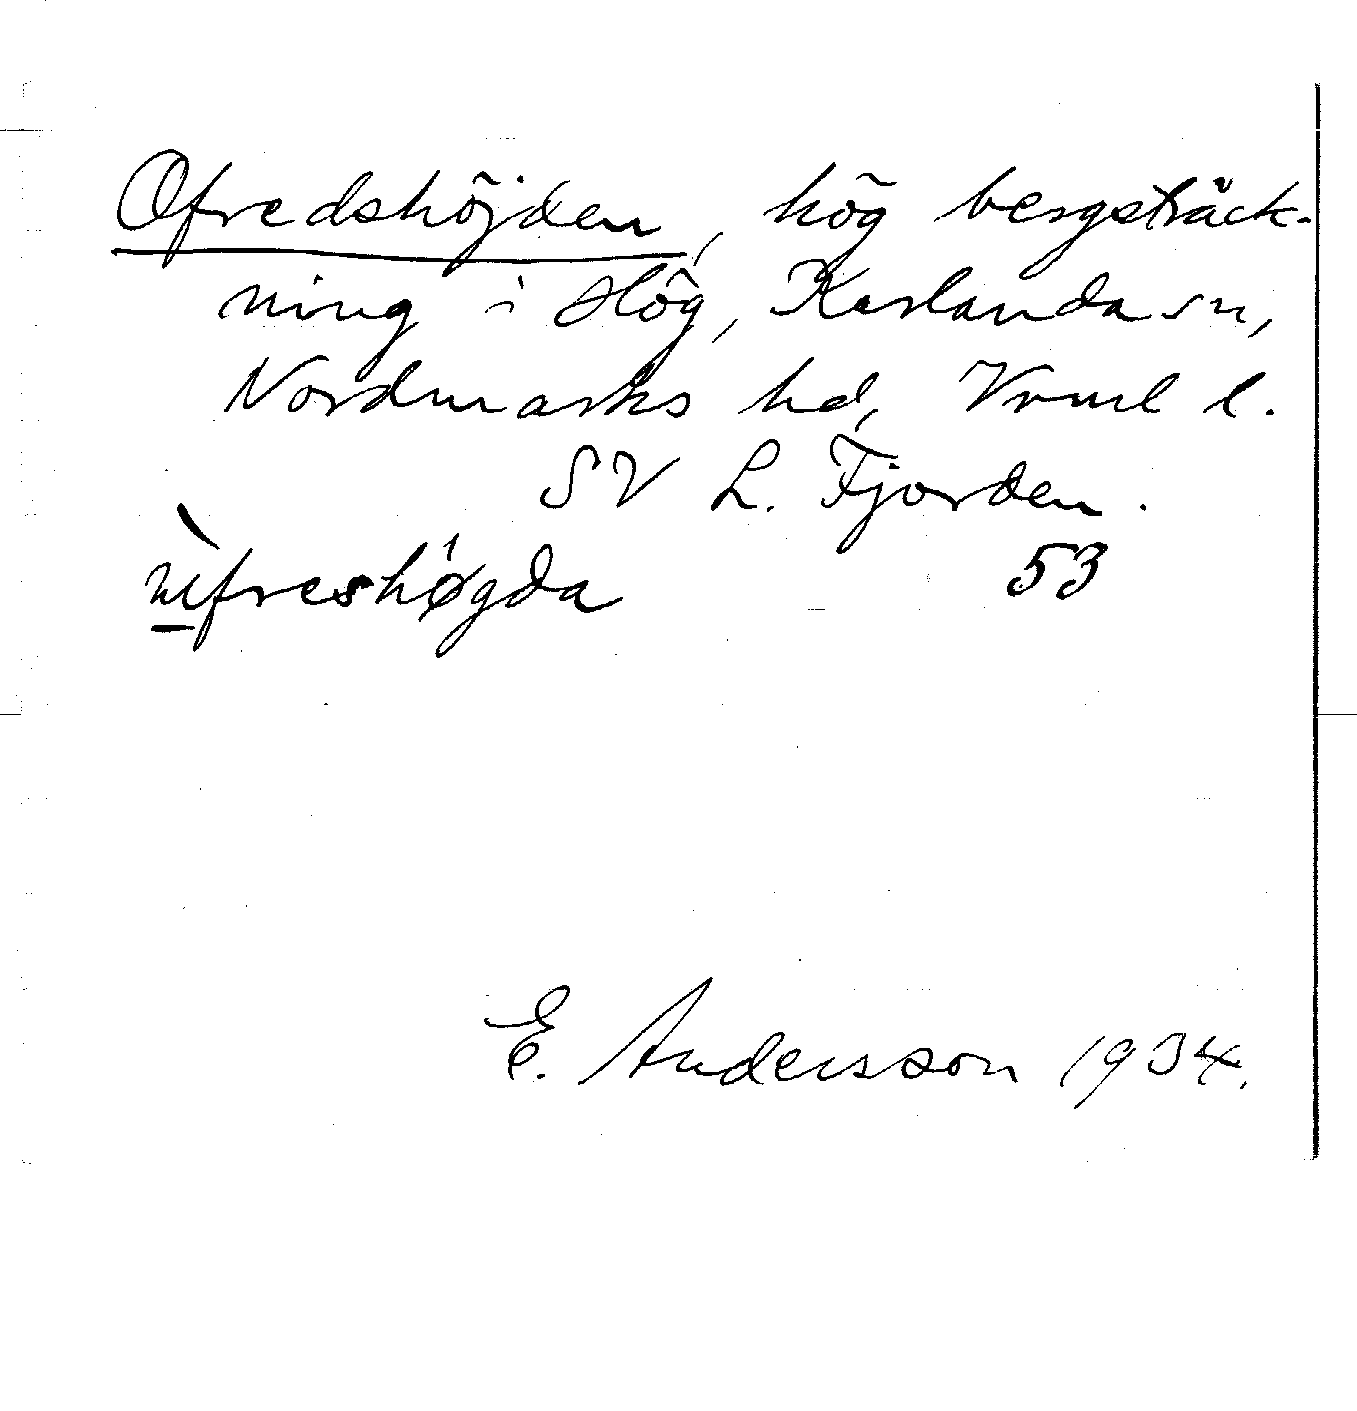 Ofredshöjden, hög bergsträck-
ning i Hög, Karlanda sn,
Nordmarks hd, Vrml l.
SV L. Fjorden.
ùfreshøgda 53
E. Andersson 1934.